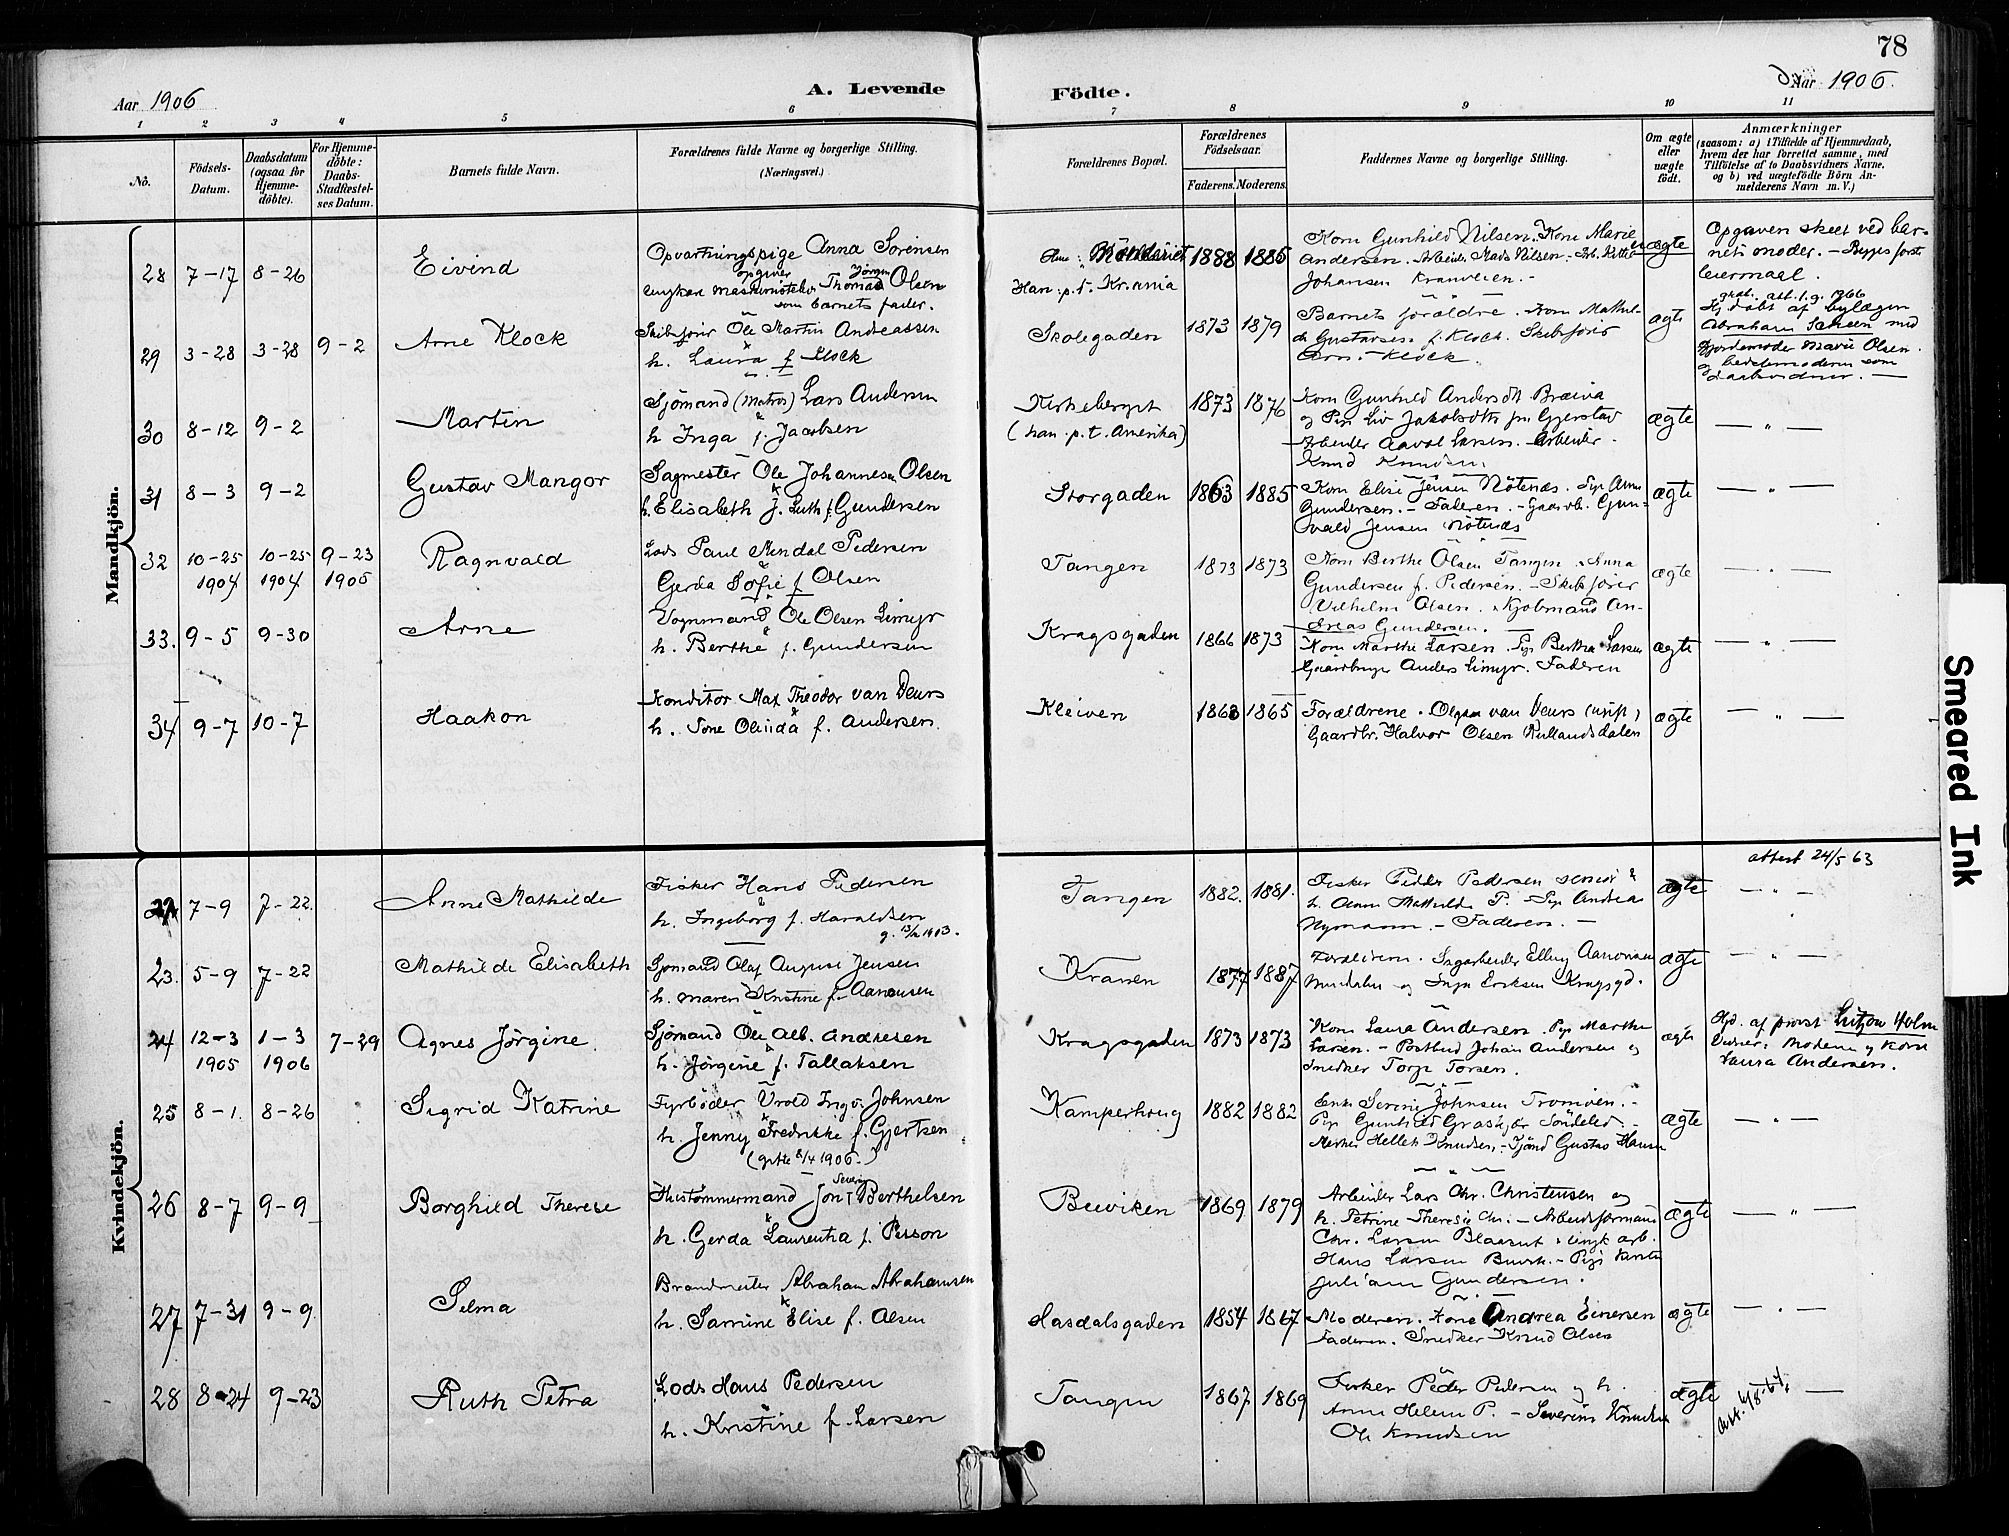 78
Aar 1906
A. Levende
Födte.
Aar 1906.
1 2 3 4 5 6 7 8 9 10 11
No.
Födsels-Datum.
Daabsdatum (ogsaa for Hjemme-döbte).
For Hjemme-döbte: Daabs-Stadfæstel-ses Datum.
Barnets fulde Navn.
Forældrenes fulde Navne og borgerlige Stilling.
(Næringsvei.)
Forældrenes Bopæl.
Forældrenes Födselsaar.
Faderens. Moderens.
Faddernes Navne og borgerlige Stilling.
Om ægte eller uægte födt.
Anmærkninger
(saasom: a) i Tilfælde af Hjemmedaab,
hvem der har forrettet samme, med
Tilföielse af to Daabsvidners Navne,
og b) ved uægtefödte Börn An-
melderens Navn m. V.)
Mandkjön.
28 7-17 8-26 Eivind
Opvartningspige Anna Sörensen
opgiver Jörgen
ungkar Thomas Olsen
som barnets fader.
Han: p.t. Kr.ania
1888 1885
Kone Gunhild Nilsen. Kone Marie
Andersen. Arbeider Mads Nilsen.
Johansen Kranveien.
uægte
Opgaven skeet ved bar-
nets moder. - Begges første
leiermaal.
29 3-28 3-28 9-2 Arne Klock
Skibsfører Ole Martin Andreassen
h. Laura f. Klock
Skolegaden 1873 1879
Barnets forældre. Kone Mathil-
de Gustavsen f. Klock. Skibsfører
Klock.
ægte
Hj.døbt af bylægen
Abraham med
Jordemoder Marie Olsen
og bedstemoderen som
daabsvidner.
30 8-12 9-2 Martin
Sjömand (Matros) Lars Andersen
h. Inga f. Jacobsen
Kirkeberget
(han p.t. Amerika)
1873 1876
Kone Gunhild Andersdt. Bræiva
Arbeider Larsen. Arbeider
Knud Knudsen
ægte
31 8-3 9-2 Gustav Mangor
Sagmester Ole Johannesen Olsen
h. Elisabeth J. Ruth f. Gundersen
Storgaden 1863 1885
Kone Elise Jensen Nötenæs. Pige Anne
Gundersen. - Faderen. - Gaardb. Gun-
vald Jensen Nötenæs
ægte
32 10-25 1904 10-25 1904 9-23 1905 Ragnvald
Lods Paul Mindal Pedersen
Gerda Sofie f. Olsen
Tangen 1873 1873
Kone Berthe Olsen Tangen. Anna
Gundersen f. Pedersen. - Skibsfører
Vilhelm Olsen. Kjøbmand An-
dreas Gundersen.
ægte
33. 9-5 9-30 Arne
Vognmand Ole Olsen Limyr
h. Berthe f. Gundersen
Kragsgaden 1866 1873
Kone Marthe Larsen. Pige Berthea Larsen
Gaardbruger Anders Limyr. Faderen
ægte
34 9-7 10-7 Haakon
Konditor Max Theodor van Deurs
h. Tone Olinda f. Andersen.
Kleiven 1863 1865
Forældrene. Olga van Deurs (ugift)
Gaardbr. Halvor Olsen Rullandsdalen
ægte
Kvindekjön.
22 7-9 7-22. Anne Mathilde
Fisker Hans Pedersen
h. Ingeborg f. Haraldsen
Tangen 1882. 1881.
Fisker Pedder Pedersen senior &
h. Anne Mathilde P. Pige Andrea
Nymann. - Faderen.
ægte
attest 24/5 63
23. 5-9 7-22 Mathilde Elisabeth
Sjömand Olaf August Jensen
h. Maren Kristine f. Aanonsen
Kranen 1877 1887
Forældrene. Sagarbeider Elling Aanonsen
Inga Eriksen Kragsgd.
ægte
24 12-3 1905 1-3 1906 7-29 Agnes Jörgine
Sjömand Ole Alb. Andresen
h. Jörgine f. Tallaksen
Kragsgaden 1873 1873
Kone Laura Andersen. Pige Marthe
Larsen. - Postbud Johan Andersen og
Snedker Torje Torsen.
ægte
Hjd. af provst Lützow Holm
Vidner: Moderen og Kone
Laura Andersen.
25 8-1. 8-26 Sigrid Katrine
Fyrböder Vrold Ingv. Johnsen
h. Jenny Fredrikke f. Gjertsen
(gifte 8/4 1906.)
Kamperhoug 1882 1882
Enke Serine Johnsen Tromöen.
Pige Gunhild Graskjær Söndeled.
Hellek Knudsen. - Sjömd Gustav Hansen
ægte
26 8-7 9-9 Borghild Therese
Skibstömmermand Jon Severin Berthelsen
h. Gerda Laurentia f. Person
Beeviken 1869 1879
Arbeider Lars Chr. Christensen og
h. Petrine Theresie Chr. - Arbeidsformand
Chr. Larsen ungk. arb.
Hans Larsen
Juliane Gundersen.
ægte
27 7-31 9-9 Selma
Brandmester Abraham Abrahamsen
h. Samine Elise f. Olsen
Hasdalsgaden 1854 1867
Moderen. Kone Andrea Einersen
Faderen. Snedker Knud Olsen
ægte
28 8-24 9-23 Ruth Petra
Lods Hans Pedersen
h. Kristine f. Larsen
Tangen 1867 1869
Fisker Peder Pedersen og h.
Anne Helene P. - Severine Knudsen
Ole Knudsen
ægte
Smeared Ink